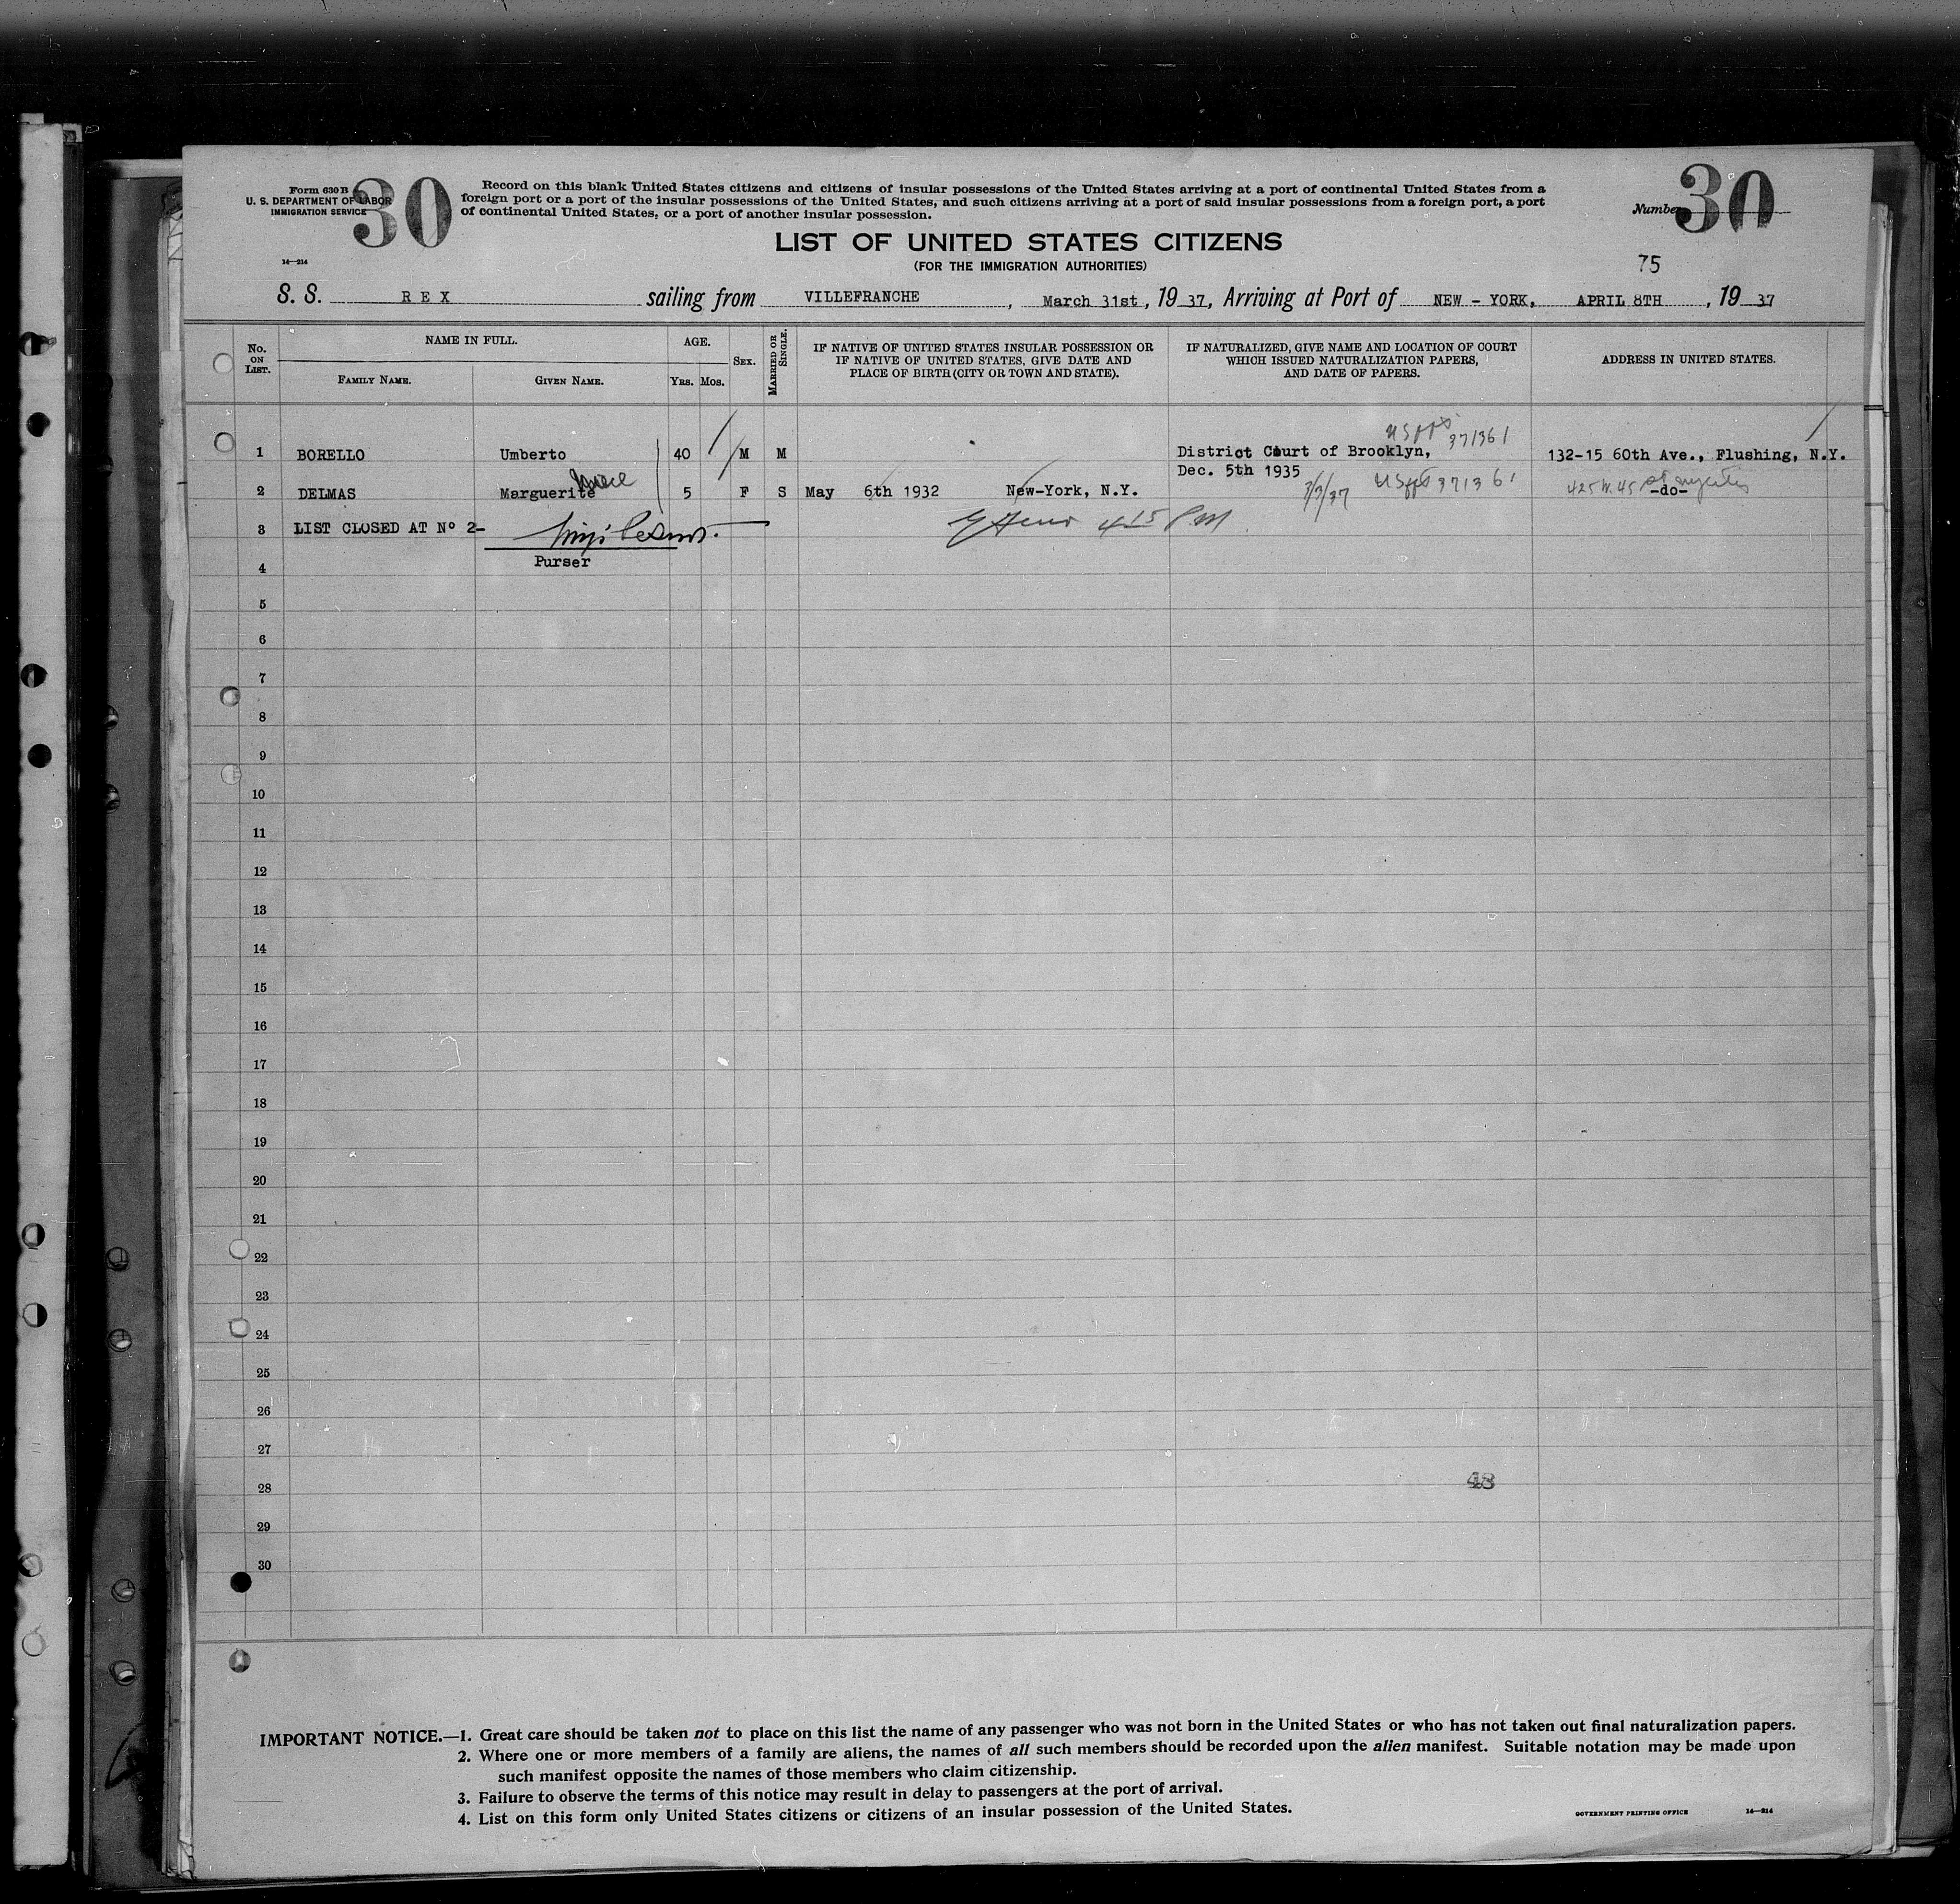 Form 630 B
U. S. DEPARTMENT OF LABOR
IMMIGRATION SERVICE
30
Record on this blank United States citizens and citizens of insular possessions of the United States arriving at a port of continental United States from a
foreign port or a port of the insular possessions of the United States, and such citizens arriving at a port of said insular possessions from a foreign port, a port
of continental United States, or a port of another insular possession.
Number 30
14—214
LIST OF UNITED STATES CITIZENS
(FOR THE IMMIGRATION AUTHORITIES)
75
S. S. REX sailing from VILLEFRANCHE, March 31st, 19 37, Arriving at Port of NEW - YORK, APRIL 8TH, 19 37
No. ON LIST.
NAME IN FULL.
FAMILY NAME.
GIVEN NAME.
AGE.
YRS. MOS.
SEX.
MARRIED OR SINGLE.
IF NATIVE OF UNITED STATES INSULAR POSSESSION OR
IF NATIVE OF UNITED STATES, GIVE DATE AND
PLACE OF BIRTH (CITY OR TOWN AND STATE).
IF NATURALIZED, GIVE NAME AND LOCATION OF COURT
WHICH ISSUED NATURALIZATION PAPERS,
AND DATE OF PAPERS.
ADDRESS IN UNITED STATES.
371361
1 BORELLO Umberto 40 M M District Court of Brooklyn, 132-15 60th Ave., Flushing, N.Y.
Dec. 5th 1935
2 DELMAS Marguerite 5 F S May 6th 1932 New-York, N.Y. 3/3/37 371361 425 W. 45 St -do-
3 LIST CLOSED AT Nº 2-
4 15 PM
Purser
4
5
6
7
8
9
10
11
12
13
14
15
16
17
18
19
20
21
22
23
24
25
26
27
48
28
29
30
IMPORTANT NOTICE.—1. Great care should be taken not to place on this list the name of any passenger who was not born in the United States or who has not taken out final naturalization papers.
2. Where one or more members of a family are aliens, the names of all such members should be recorded upon the alien manifest. Suitable notation may be made upon
such manifest opposite the names of those members who claim citizenship.
3. Failure to observe the terms of this notice may result in delay to passengers at the port of arrival.
4. List on this form only United States citizens or citizens of an insular possession of the United States.
GOVERNMENT PRINTING OFFICE 14—214